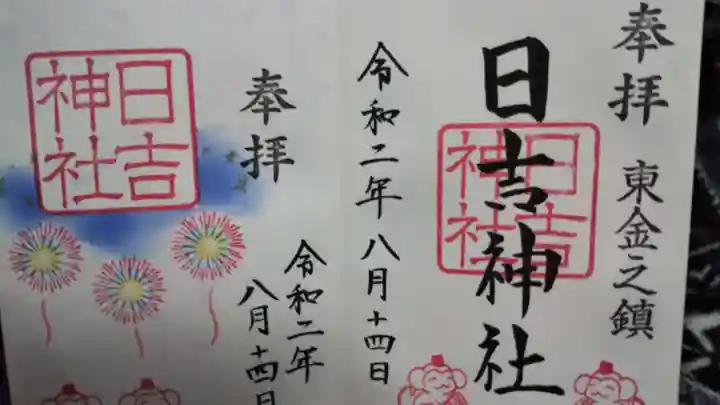 奉拝 東金之鎮
日吉神社
日吉神社
令和二年八月十四日
奉拝
日吉神社
令和二年
八月十四日